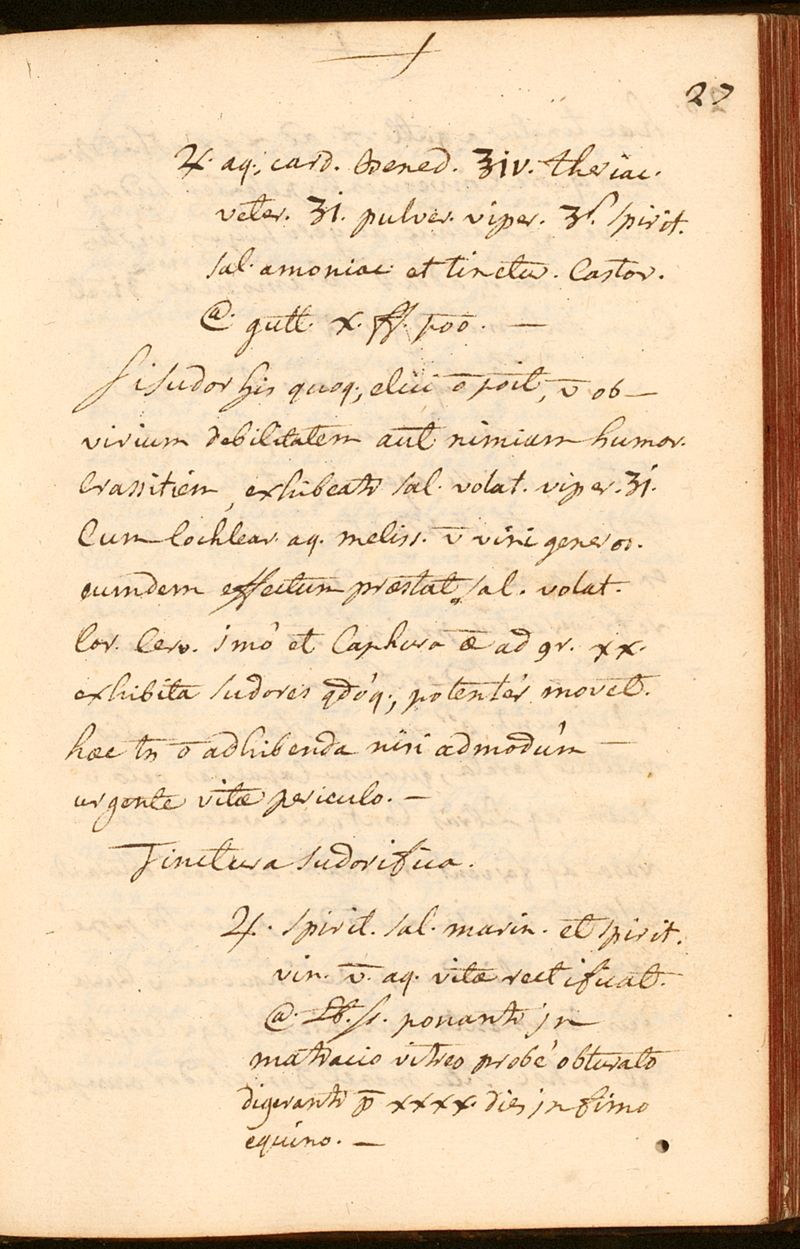 27
♃. aq. card. Bened. ʒiv. theriac.
veter. ʒi. pulver. viper. ʒß. Spirit.
sal. amoniac et tinctur. Castor.
@. gutt. x. ff. poō. —
Si sudor his quoq;, elici ō poit, v̄ ob —
virium debilitatem aut nimiam humor.
Crassitiem, exhibeatr sal. volat. viper. ʒi.
Cum Cochlear. aq. meliss. v̄ vini generos.
eumdem effectum præstat sal. volat.
Cor. Cerv. imò et Caphura æ ad gr. xx.
exhibita sudores qdóq;, potentér movet.
hæc tn ō adhibenda nisi admodúm —
urgente vitæ periculo. —
Tinctura sudorifica.
♃. spirit. sal. marin. et spirit.
vin. v̄. aq. vitæ rectificat.
@. ℔. ß. ponantr in
matracio vitreo probé obturato
digerantr p̄ xxxx. dies in fimo
equino. —